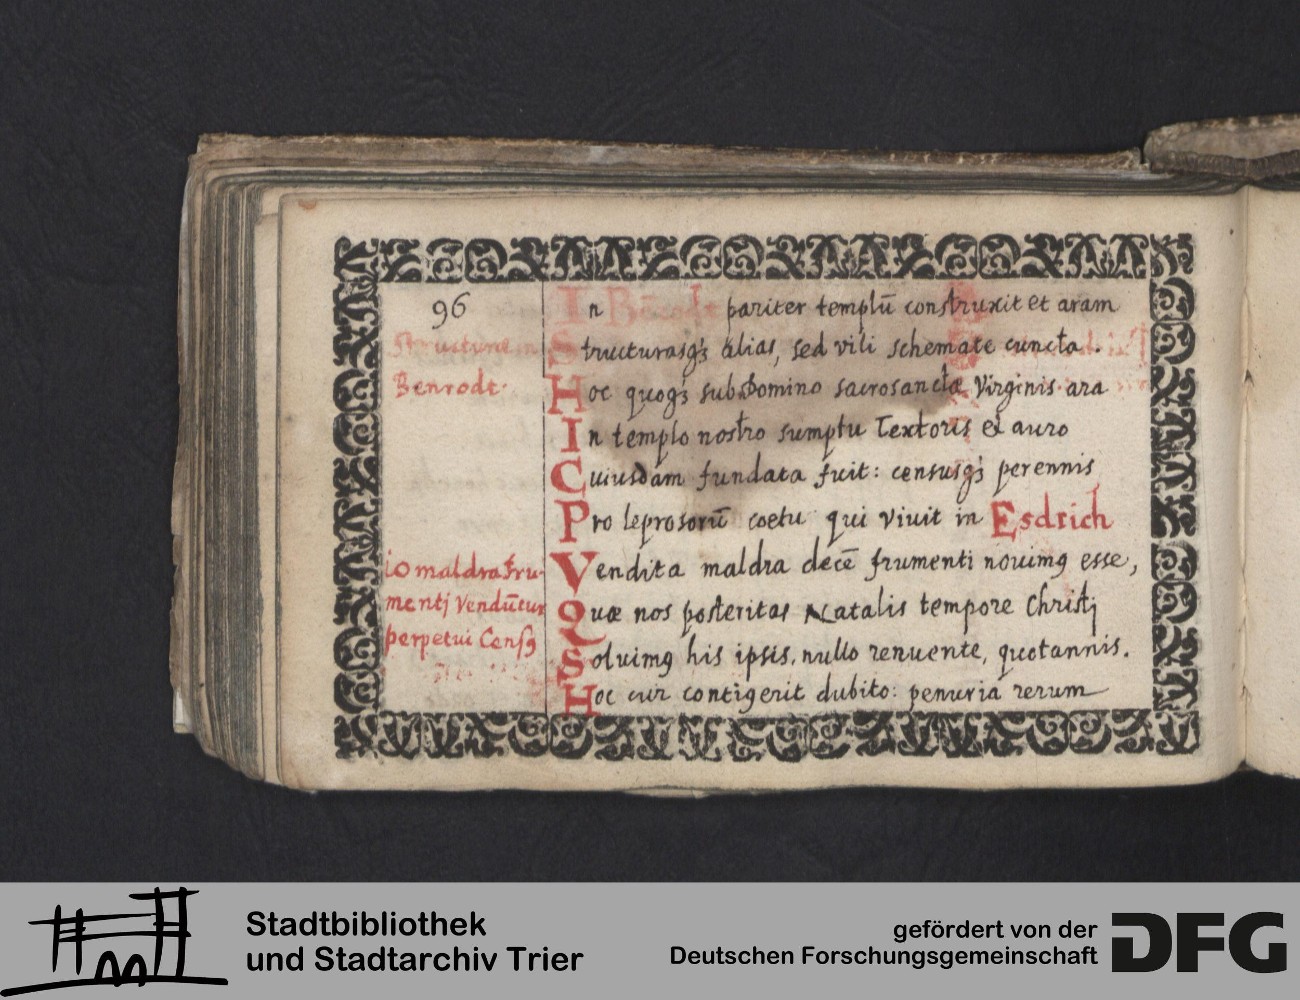 96
Structure in
Benrodt.
10 maldra fru-
mentj Vendūtur
perpetui Censꝯ
In Bēnrodt pariter templū construxit et aram
Structurasqȝ alias, sed vili schemate cuncta.
Hoc quoqȝ sub Domino sacrosanctæ Virginis ara
In templo nostro sumptu Textoris et auro
Cuiusdam fundata fuit: censusqȝ perennis
Pro leprosorū coetu qui viuit in Esdrich
Vendita maldra decē frumenti nouimꝯ esse,
Quæ nos posteritas Natalis tempore Christj
Soluimꝯ his ipsis, nullo renuente, quotannis.
Hoc cur contigerit dubito: penuria rerum
Stadtbibliothek
und Stadtarchiv Trier
gefördert von der
Deutschen Forschungsgemeinschaft
DFG